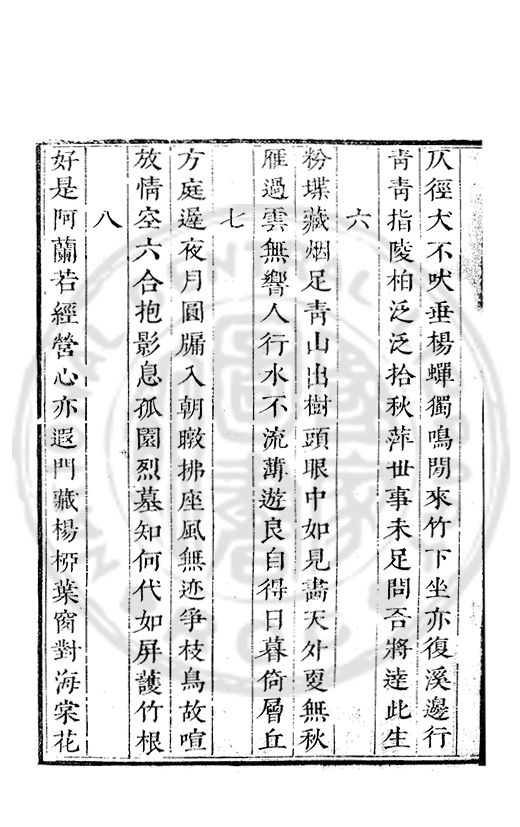 仄徑犬不吠垂楊蟬獨鳴閒來竹下坐亦復溪邊行
青青指陵柏泛泛拾秋萍世事未足問吾將達此生
六
粉堞藏烟足青山出樹頭眼中如見畫天外夏無秋
雁過雲無響人行水不流薄遊良自得日暮倚層丘
七
方庭遲夜月圓牖入朝暾拂座風無迹爭枝鳥故喧
放情空六合抱影息孤園烈墓知何代如屏護竹根
八
好是阿蘭若經營心亦遐門藏楊椏葉窗對海棠花